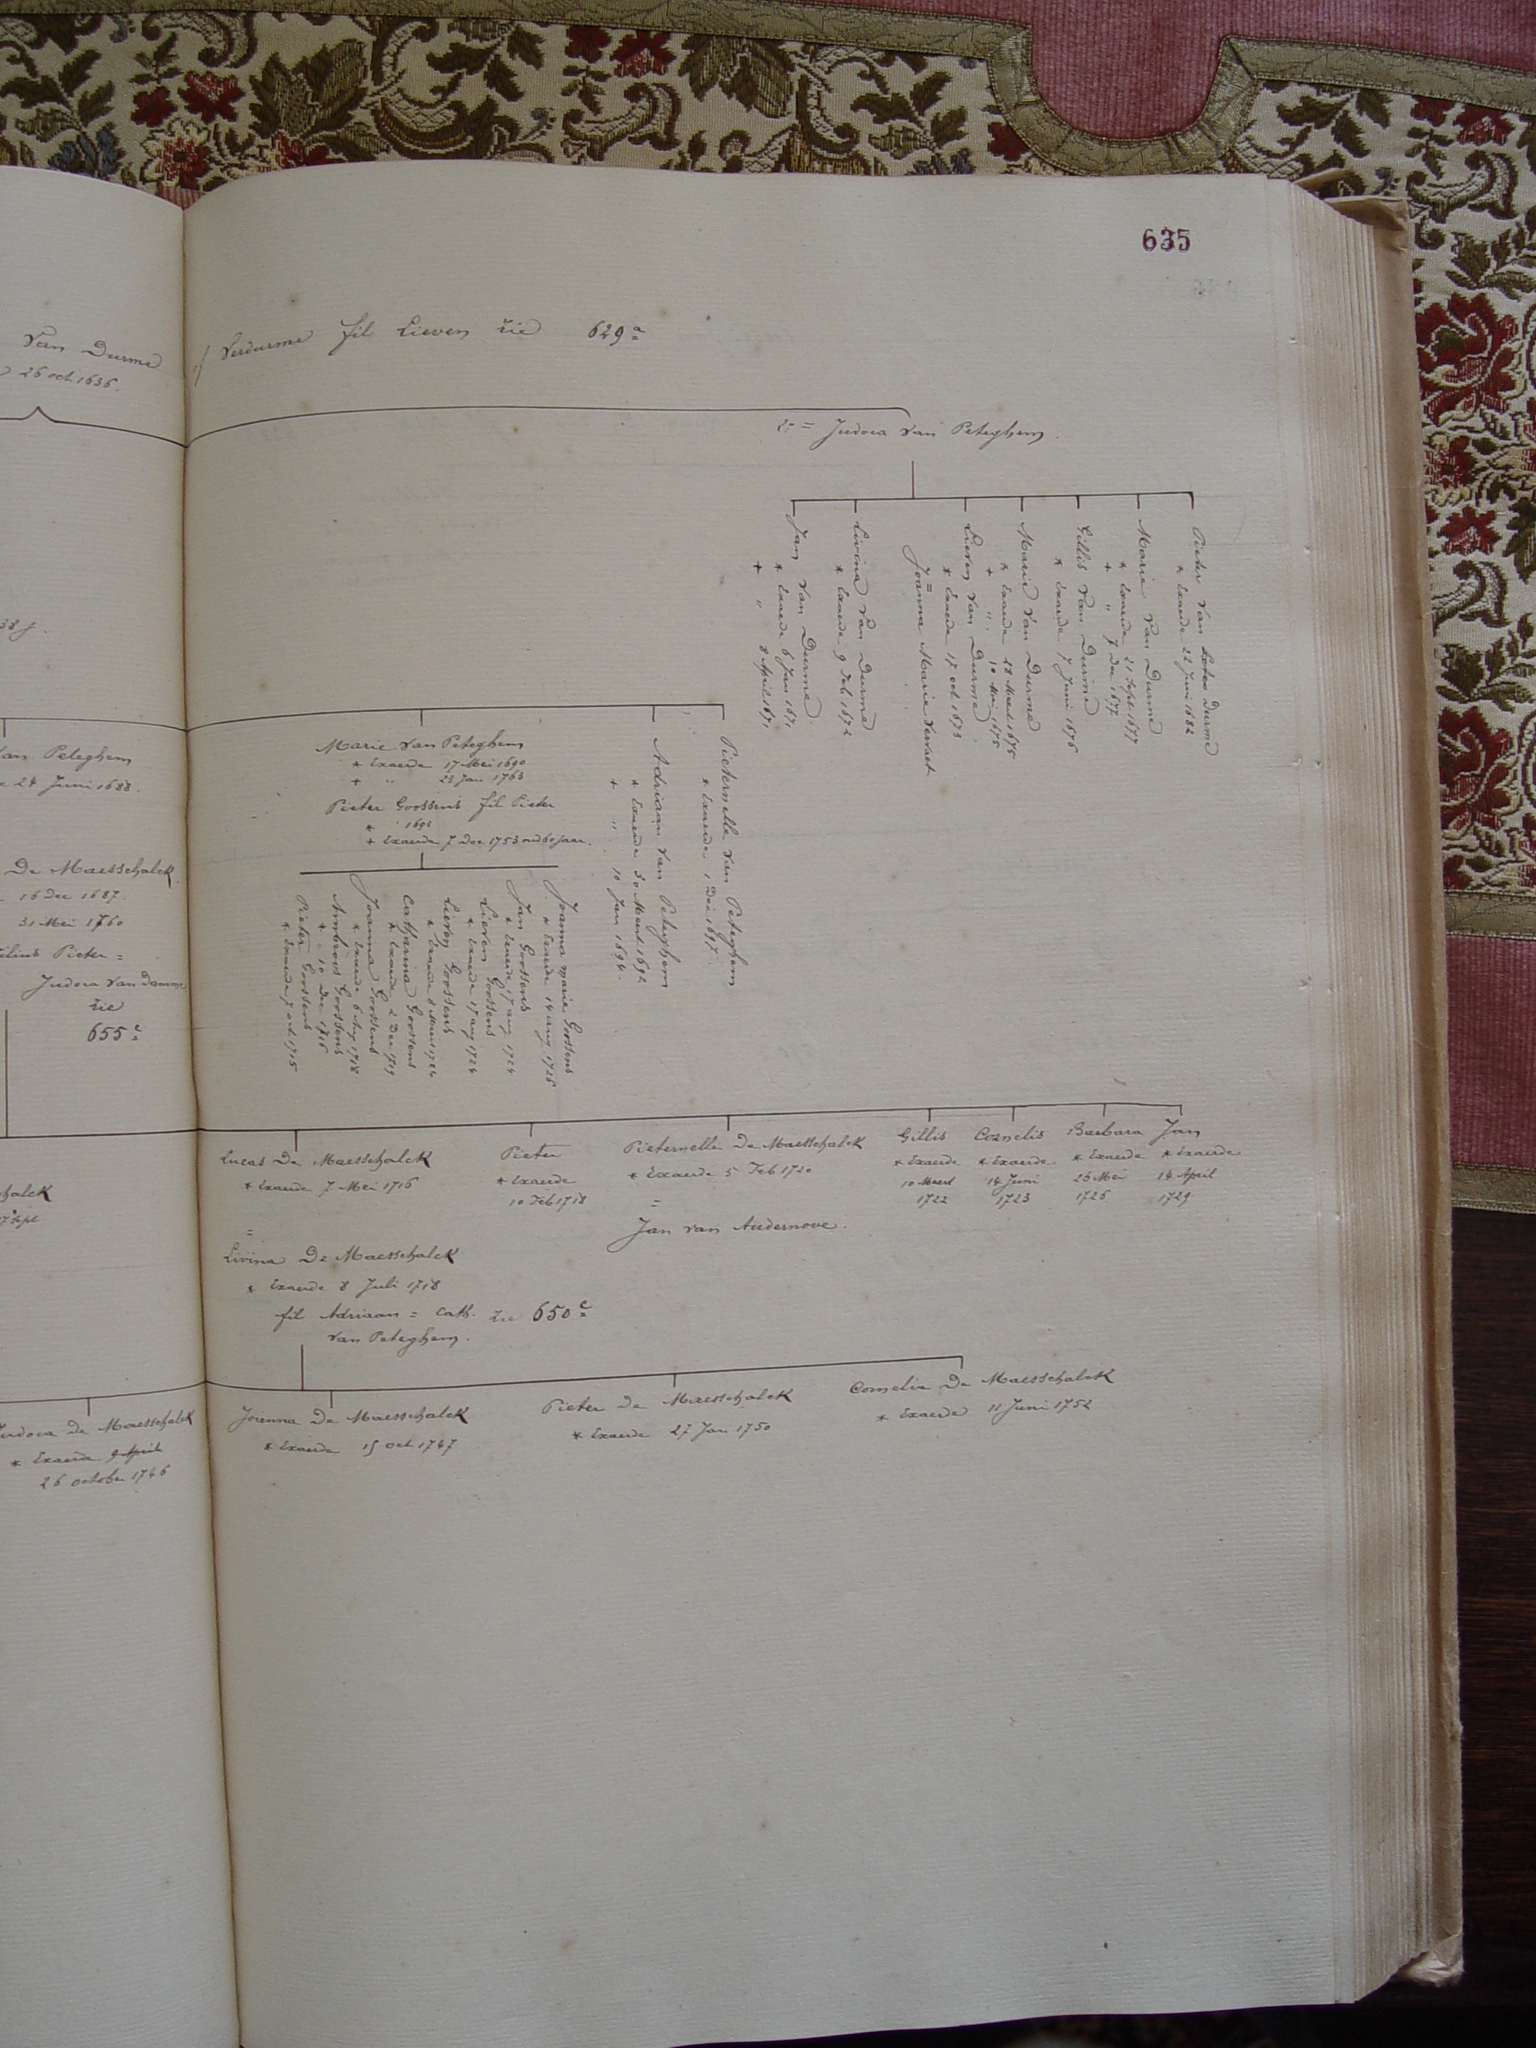 635
Van Durme
26 oct 1636.
of Verdurme fil Lieven zie 629a
2e = Judoca Van Peteghem
Jan Van Durme
* Exaerde 6 Jan 1671
+ " 8 April 1671
Livina Van Durme
* Exaerde 9 Feb 1672
Lieven Van Durme
* Exaerde 17 oct 1673
=
Joanna Marie Vervaet
Marie Van Durme
* Exaerde 28 Maert 1675
+ " 10 Mei 1675
Gillis Van Durme
* Exaerde 7 Juni 1676
Marie Van Durme
* Exaerde 21 Sept 1677
+ " 7 Dec 1677
Pieter Van Durme
* Exaerde 22 Juni 1682
Van Peteghem
24 Juni 1688.
Marie Van Peteghem
* Exaerde 17 Mei 1690
+ " 23 Jan 1763
Pieter Goossens fil Pieter
* 1692
+ Exaerde 7 Dec 1753 oud 60 jaar.
Adriaan Van Peteghem
* Exaerde 30 Maert 1692
+ " 10 Jan 1694.
Pieternelle Van Peteghem
* Exaerde 1 Dec 1697.
De Maesschalck
16 Dec 1687.
31 Mei 1760
Pieter =
Judoca Van Damme
zie
655c
Pieter Goossens
* Exaerde 7 oct 1715
Ambroos Goossens
* " 10 Dec 1716
Joanna Goossens
* Exaerde 6 Aug 1718
Catharina Goossens
* Exaerde 2 Dec 1719
Lieven Goossens
* Exaerde 8 Maert 1722
Lieven Goossens
* Exaerde 17 aug 1724
Jan Goossens
* Exaerde 17 aug 1724
Joanna Marie Goossens
* Exaerde 14 aug 1726
Lucas De Maesschalck
* Exaerde 7 Mei 1716
=
Livina De Maesschalck
* Exaerde 8 Juli 1718
fil Adriaan = Cath. zie 650c
Van Peteghem.
Pieter
* Exaerde
10 Feb 1718
Pieternelle De Maesschalck
* Exaerde 5 Feb 1720
=
Jan Van Audernove.
Gillis
* Exaerde
10 Maert
1722
Cornelis
* Exaerde
14 Juni
1723
Barbara
* Exaerde
26 Mei
1726
Jan
* Exaerde
14 April
1729
Judoca De Maesschalck
* Exaerde 9 April
26 october 1746
Joanna De Maesschalck
* Exaerde 15 oct 1747
Pieter De Maesschalck
* Exaerde 27 Jan 1750
Cornelia De Maesschalck
* Exaerde 11 Juni 1752